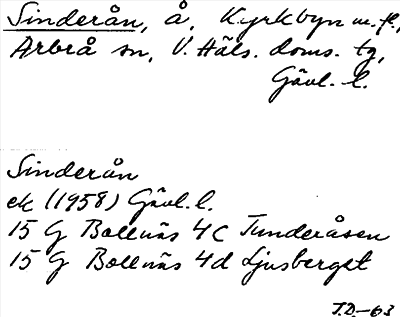 Sinderån, å, Kyrkbyn m.fl.,
Arbrå sn, V. Häls. doms. tg,
Gävl. l.
Sinderån
ek (1958) Gävl. l.
15 G Bollnäs 4c Tunderåsen
15 G Bollnäs 4d Ljusberget
T.D.-63